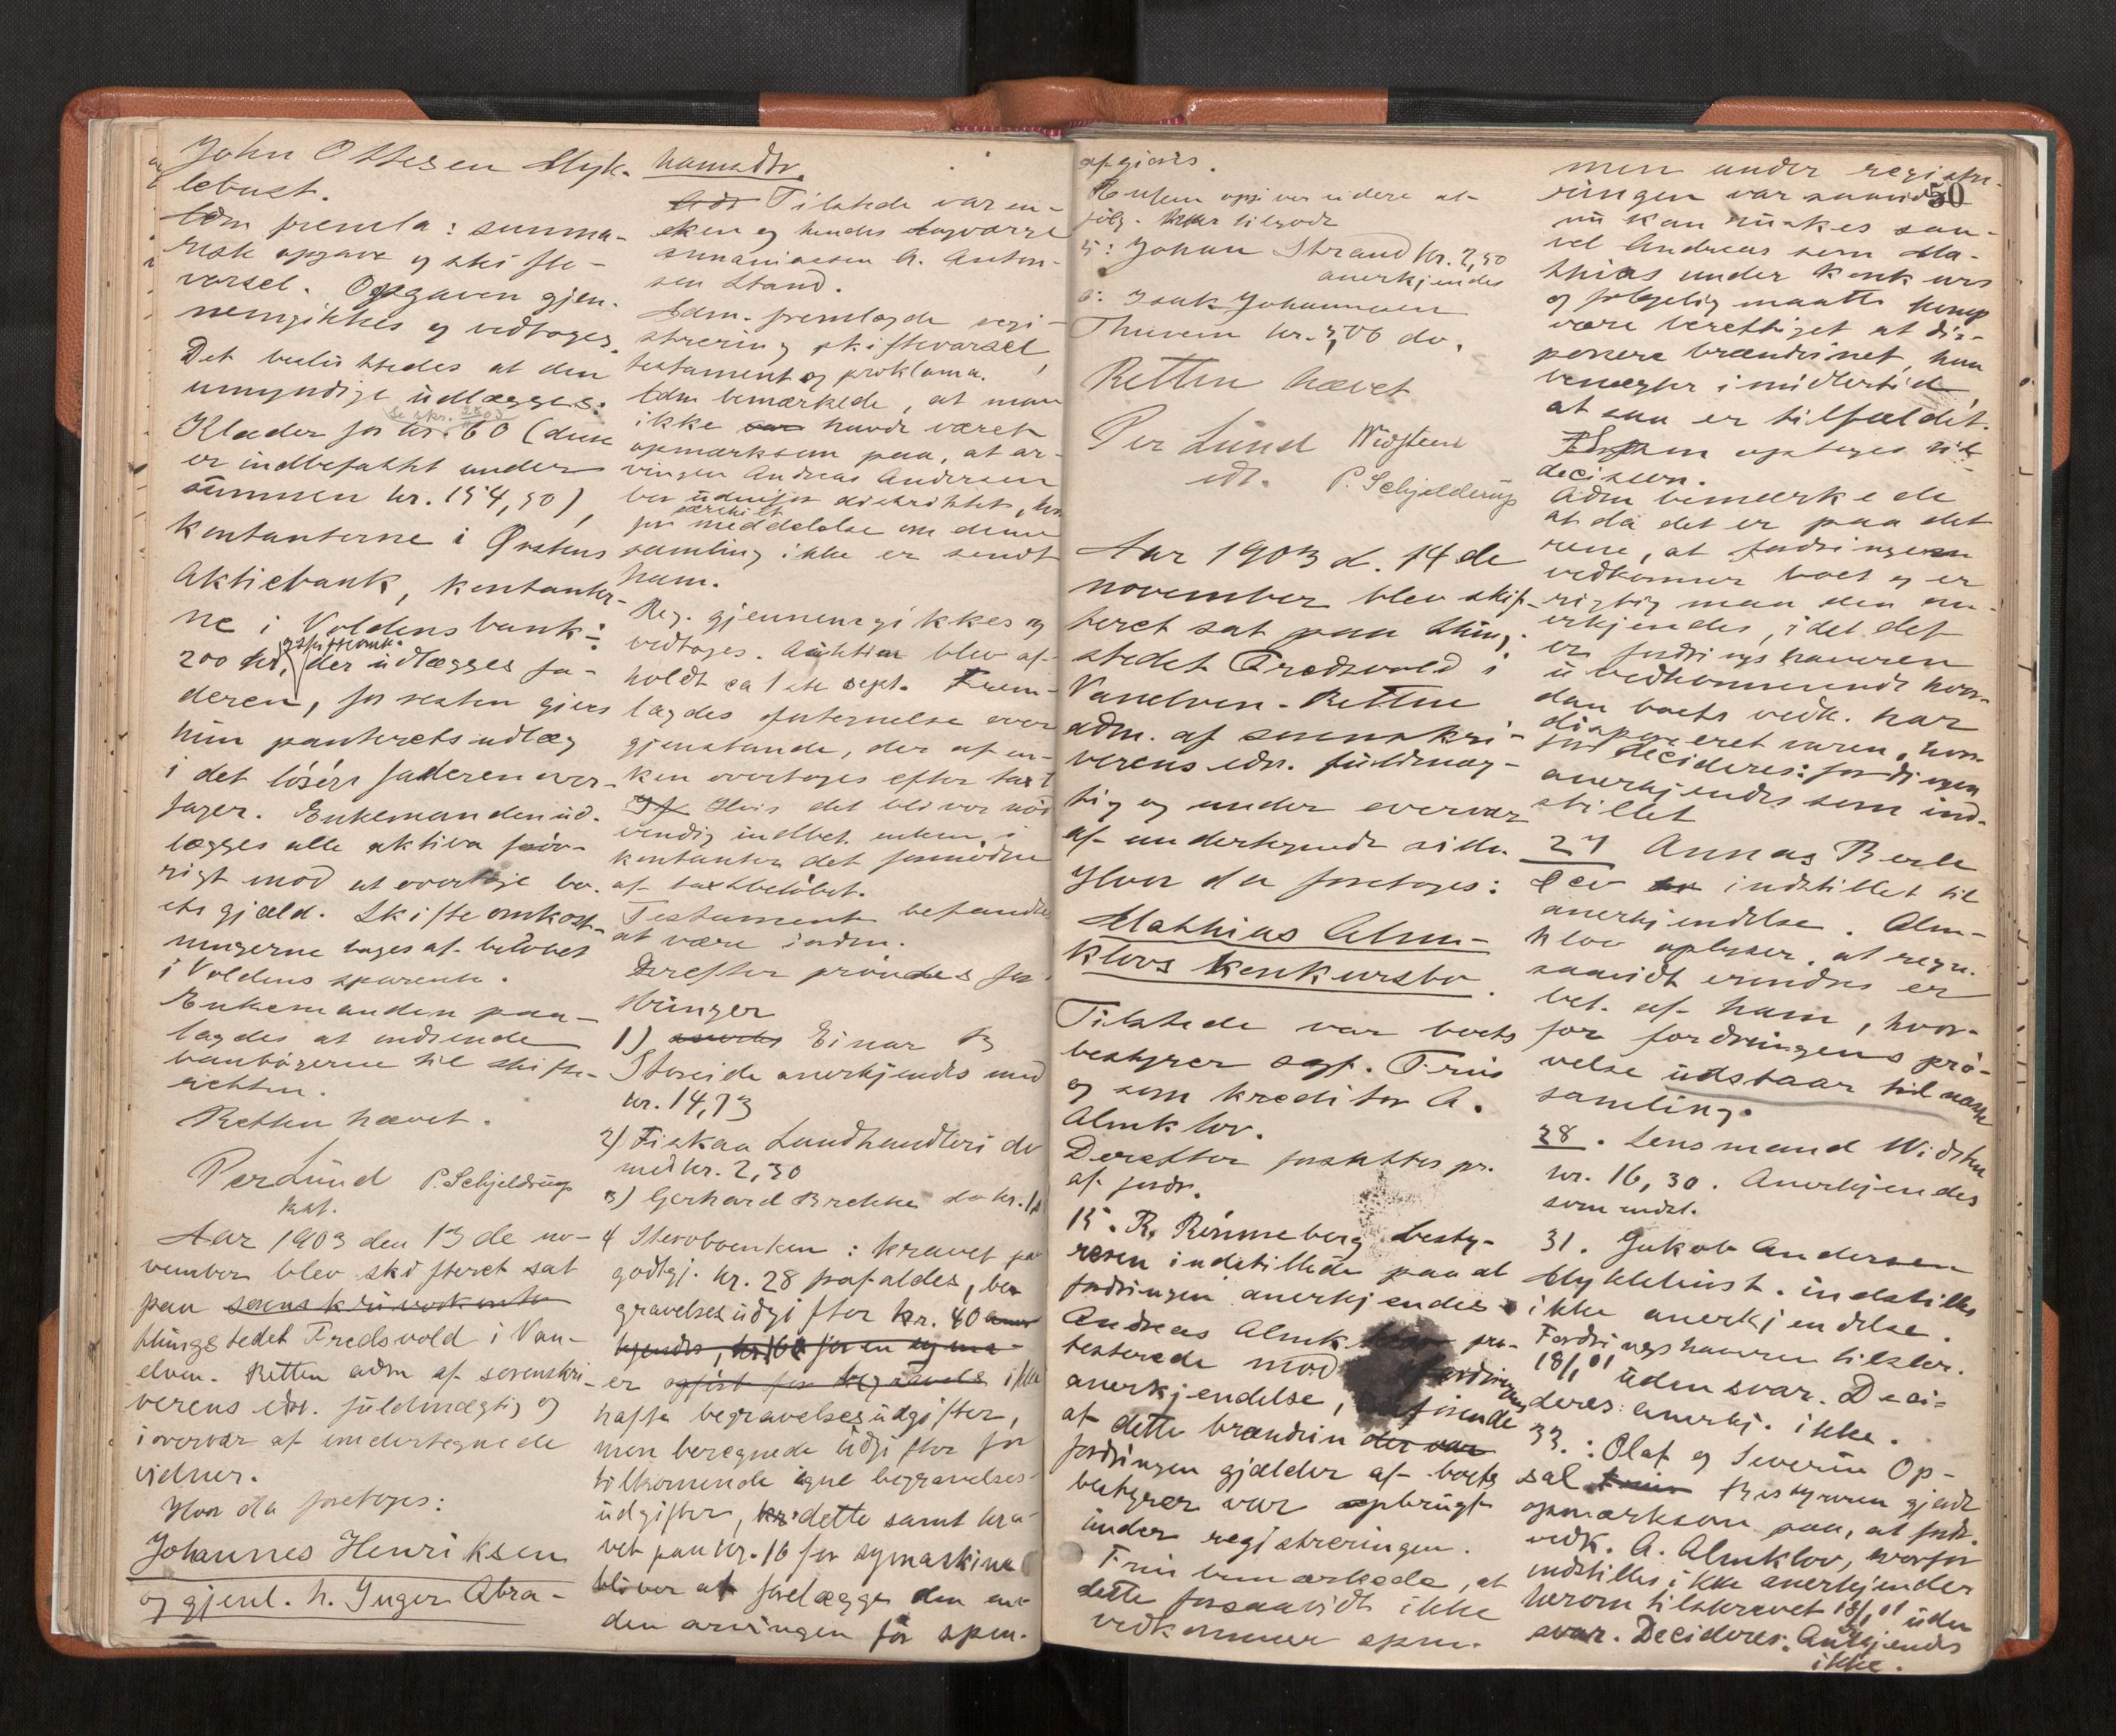 John Ottesen Myk-
lebust.
Adm fremla: summa-
risk opgave og skifte-
varsel. Opgaven gjen-
nemgikkes og vedtoges.
Det besluttedes at den
umyndige udlægges:
Klæder for kr. 60 (disse
er indbefattet under
summen kr. 154,50),
kontanterne i Ørstens
Aktiebank, kontanter-
ne i Voldens bank:
200 kr, der udlægges fa-
deren, for resten gives
hun panteretsudlæg
i det løsøre faderen over-
tager. Enkemanden ud-
lægges alle aktiva føv-
rigt mod at overtage bo-
ets gjæld. Skifteomkost-
ningerne tages af beløbet
i Voldens sparebk.
Enkemanden paa-
lagdes at indsende
bankbøgerne til skifte-
retten.
Retten hævet.
Per Lund P. Schjelderup
kst.
Aar 1903 den 13 de no-
vember blev skifteret sat
paa sorenskriverkontor
thingstedet Fredsvold i Van-
elven. Retten adm af sorenskri-
verens edsv. fuldmægtig og
i overvær af undertegnede
vidner.
Hvor da foretoges:
Johannes Henriksen
og gjenl. h. Inger Abra-
hamsdtr.
Tilstede var en-
ken og hendes lagværge
A. Anton-
sen Stand.
Adm. fremlagde regi-
strering, skiftevarsel,
testament og proklama.
Adm bemærkede, at man
ikke var havde været
opmærksom paa, at ar-
vingen Andreas Andersen
bor udenfor distriktet, hvor-
for særskilt meddelelse om denne
samling ikke er sendt
ham.
Reg. gjennemgikkes og
vedtoges. Auktion blev af-
holdt ca 1ste sept. Frem-
lagdes fortegnelse over
gjenstande, der af en-
ken overtoges efter taxt
Hvis det bliver nød
vendig indbet. enken i
kontanter det fornødne
af taxtbeløbet.
Testament befandtes
at være i orden.
Derefter prøvedes for-
dringer
1) Einar B
Storeide anerkjendes med
kr. 14,73
2) Fiskaa Landhandleri do
med kr. 2,30
3) Gerhard Brekke do kr.
4 Storobanken: kravet paa
godtgj. kr. 28 frafaldes, be-
gravelsesudgifter kr. 40
er opført for begravelse ikke
hafte begravelsesudgifter,
men beregnede udgifter for
tilkommende egne begravelses-
udgifter, kr dette samt kra-
vet paa kr. 16 for symaskine
bliver at forelægge den an-
den arvingen før spm.
50
afgjøres.
Enken opgiver videre at
følg. har tilgode
5: Johan Strand kr. 2,50
anerkjendes
6: Isak Johannesen
Thuvein kr. 3,00 do.
Retten hævet
Per Lund Widsteen
edt. P. Schjelderup
Aar 1903 d. 14 de
november blev skif-
teret sat paa thing-
stedet Fredsvold i
Vanelven. Retten
adm. af sorenskri-
verens edsv. fuldmæg-
tig og under overvær
af undertegnede vidn.
Hvor da foretoges:
Mathias Alm-
kloos konkursbo.
Tilstede var boets
bestyrer sagf. Friis
og som kreditor A.
Almklov.
Derefter fortsattes pr.
af fordr.
15. R. Rønneberg besty-
reren indstillede paa at
fordringen anerkjendes
Andreas Almk pro-
testerede mod fordringens
anerkjendelse,
af dette brændvin der var
fordringen gjælder af boets
bestyrer var opbrugt
under registreringen.
Friis bemærkede, at
dette forsaavidt ikke
vedkommer spm.
men under registre-
ringen var saavidt
nu kan huskes saa-
vel Andreas som Ma-
thias under konkurs
og følgelig maatte komp
være berettiget at dis-
ponere brændvinet, han
benægter imidlertid,
at saa er tilfældet.
Spm optages til
decision.
Adm bemærkede
at da det er paa det
rene, at fordringen
vedkommer boet og er
rigtig maa den an-
erkjendes, idet det
er fordringshaveren
uvedkommende hvor-
dan boets vedk. har
disponeret varen, hvor-
for decideres: fordringen
anerkjendes som ind-
stillet
27 Annas Berle
indstillet til
anerkjendelse. Alm-
klov oplyser, at regn.
saavidt erindres er
bet. af ham, hvor-
for fordringens prø-
velse udstaar til næste
samling.
28. Lensmand Widsteen
kr. 16,30. Anerkjendes
som indst.
31. Jakob Andersen
Myklebust. indstilles
ikke anerkjendelse.
Fordringshaveren tilskr.
18/1 01 uden svar. Deci-
deres: anerkj. ikke.
33.: Olaf og Severin Op-
sal Bestyreren gjorde
opmærksom paa, at fordr.
vedk. A. Almklov, hvorfor
indstilles ikke anerkjendes
herom tilskrevet 18/1 01 uden
svar. Decideres: Anerkjendes
ikke.